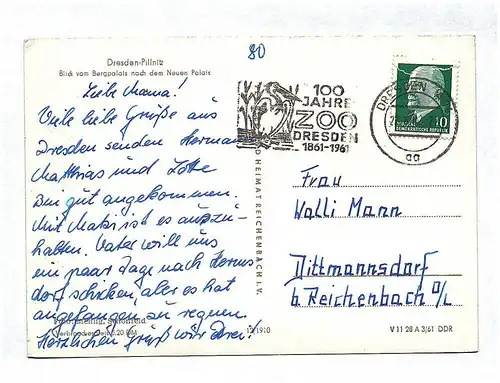 80
Dresden-Pillnitz
Blick vom Bergpalais nach dem Neuen Palais
Liebe Mama!
Viele liebe Grüße aus
Dresden senden Hermann
Matthias und Lotte
Sin gut angekommen.
Mit Matzi ist es auszu-
halten. Vater will uns
ein paar Tage nach
dorf schicken, aber es hat
angefangen zu regnen.
Herzlichen Gruß wir Drei!
100
JAHRE
ZOO
DRESDEN
1861-1961
DRESDEN
aa
10
DEUTSCHE DEMOKRATISCHE REPUBLIK
Frau
Walli Mann
Dittmannsdorf
b. Reichenbach O/L
BILD UND HEIMAT REICHENBACH I. V.
12/1910
V 11 28 A 3/61 DDR